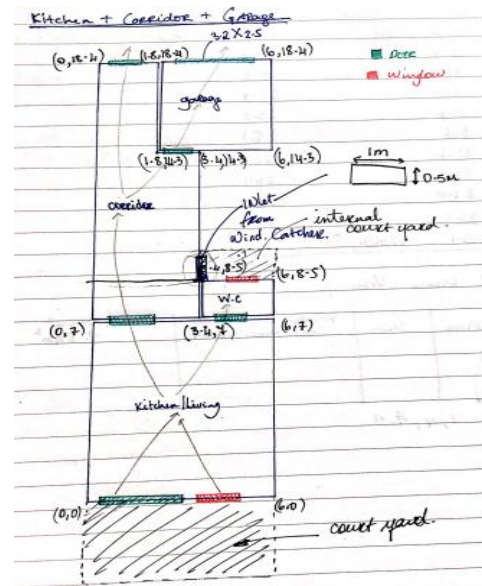 Kitchen + Corridor + Garage
3.2 X 2.5
(0,18.4) (1.8,18.4) (6,18.4)
Door
Window
garage
(1.8,14.3) (3.4,14.3) (6,14.3)
1m
0.5m
corridor
Inlet
from
Wind Catcher
internal
court yard.
.4,8.5) (6,8.5)
W.C
(0,7) (3.4,7) (6,7)
Kitchen/Living
(0,0) (6,0)
court yard.